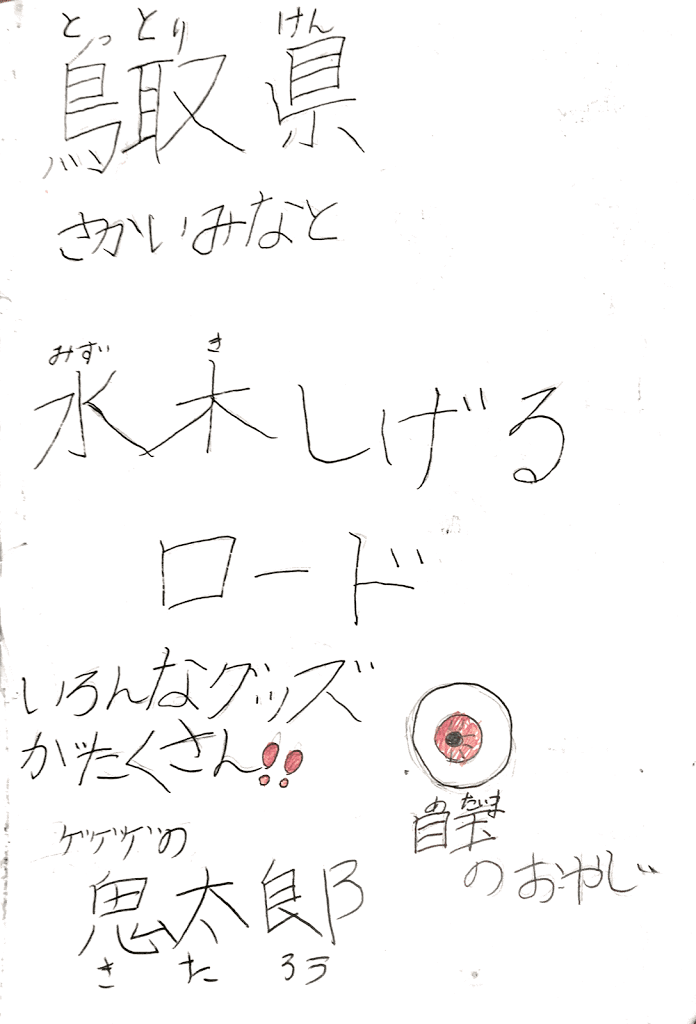 とっとり けん
鳥取県
さかいみなと
みず き
水木しげる
ロード
いろんなグッズ
がたくさん!!
めだま
目玉
のおやじ
ゲゲゲの
鬼太郎
きたろう